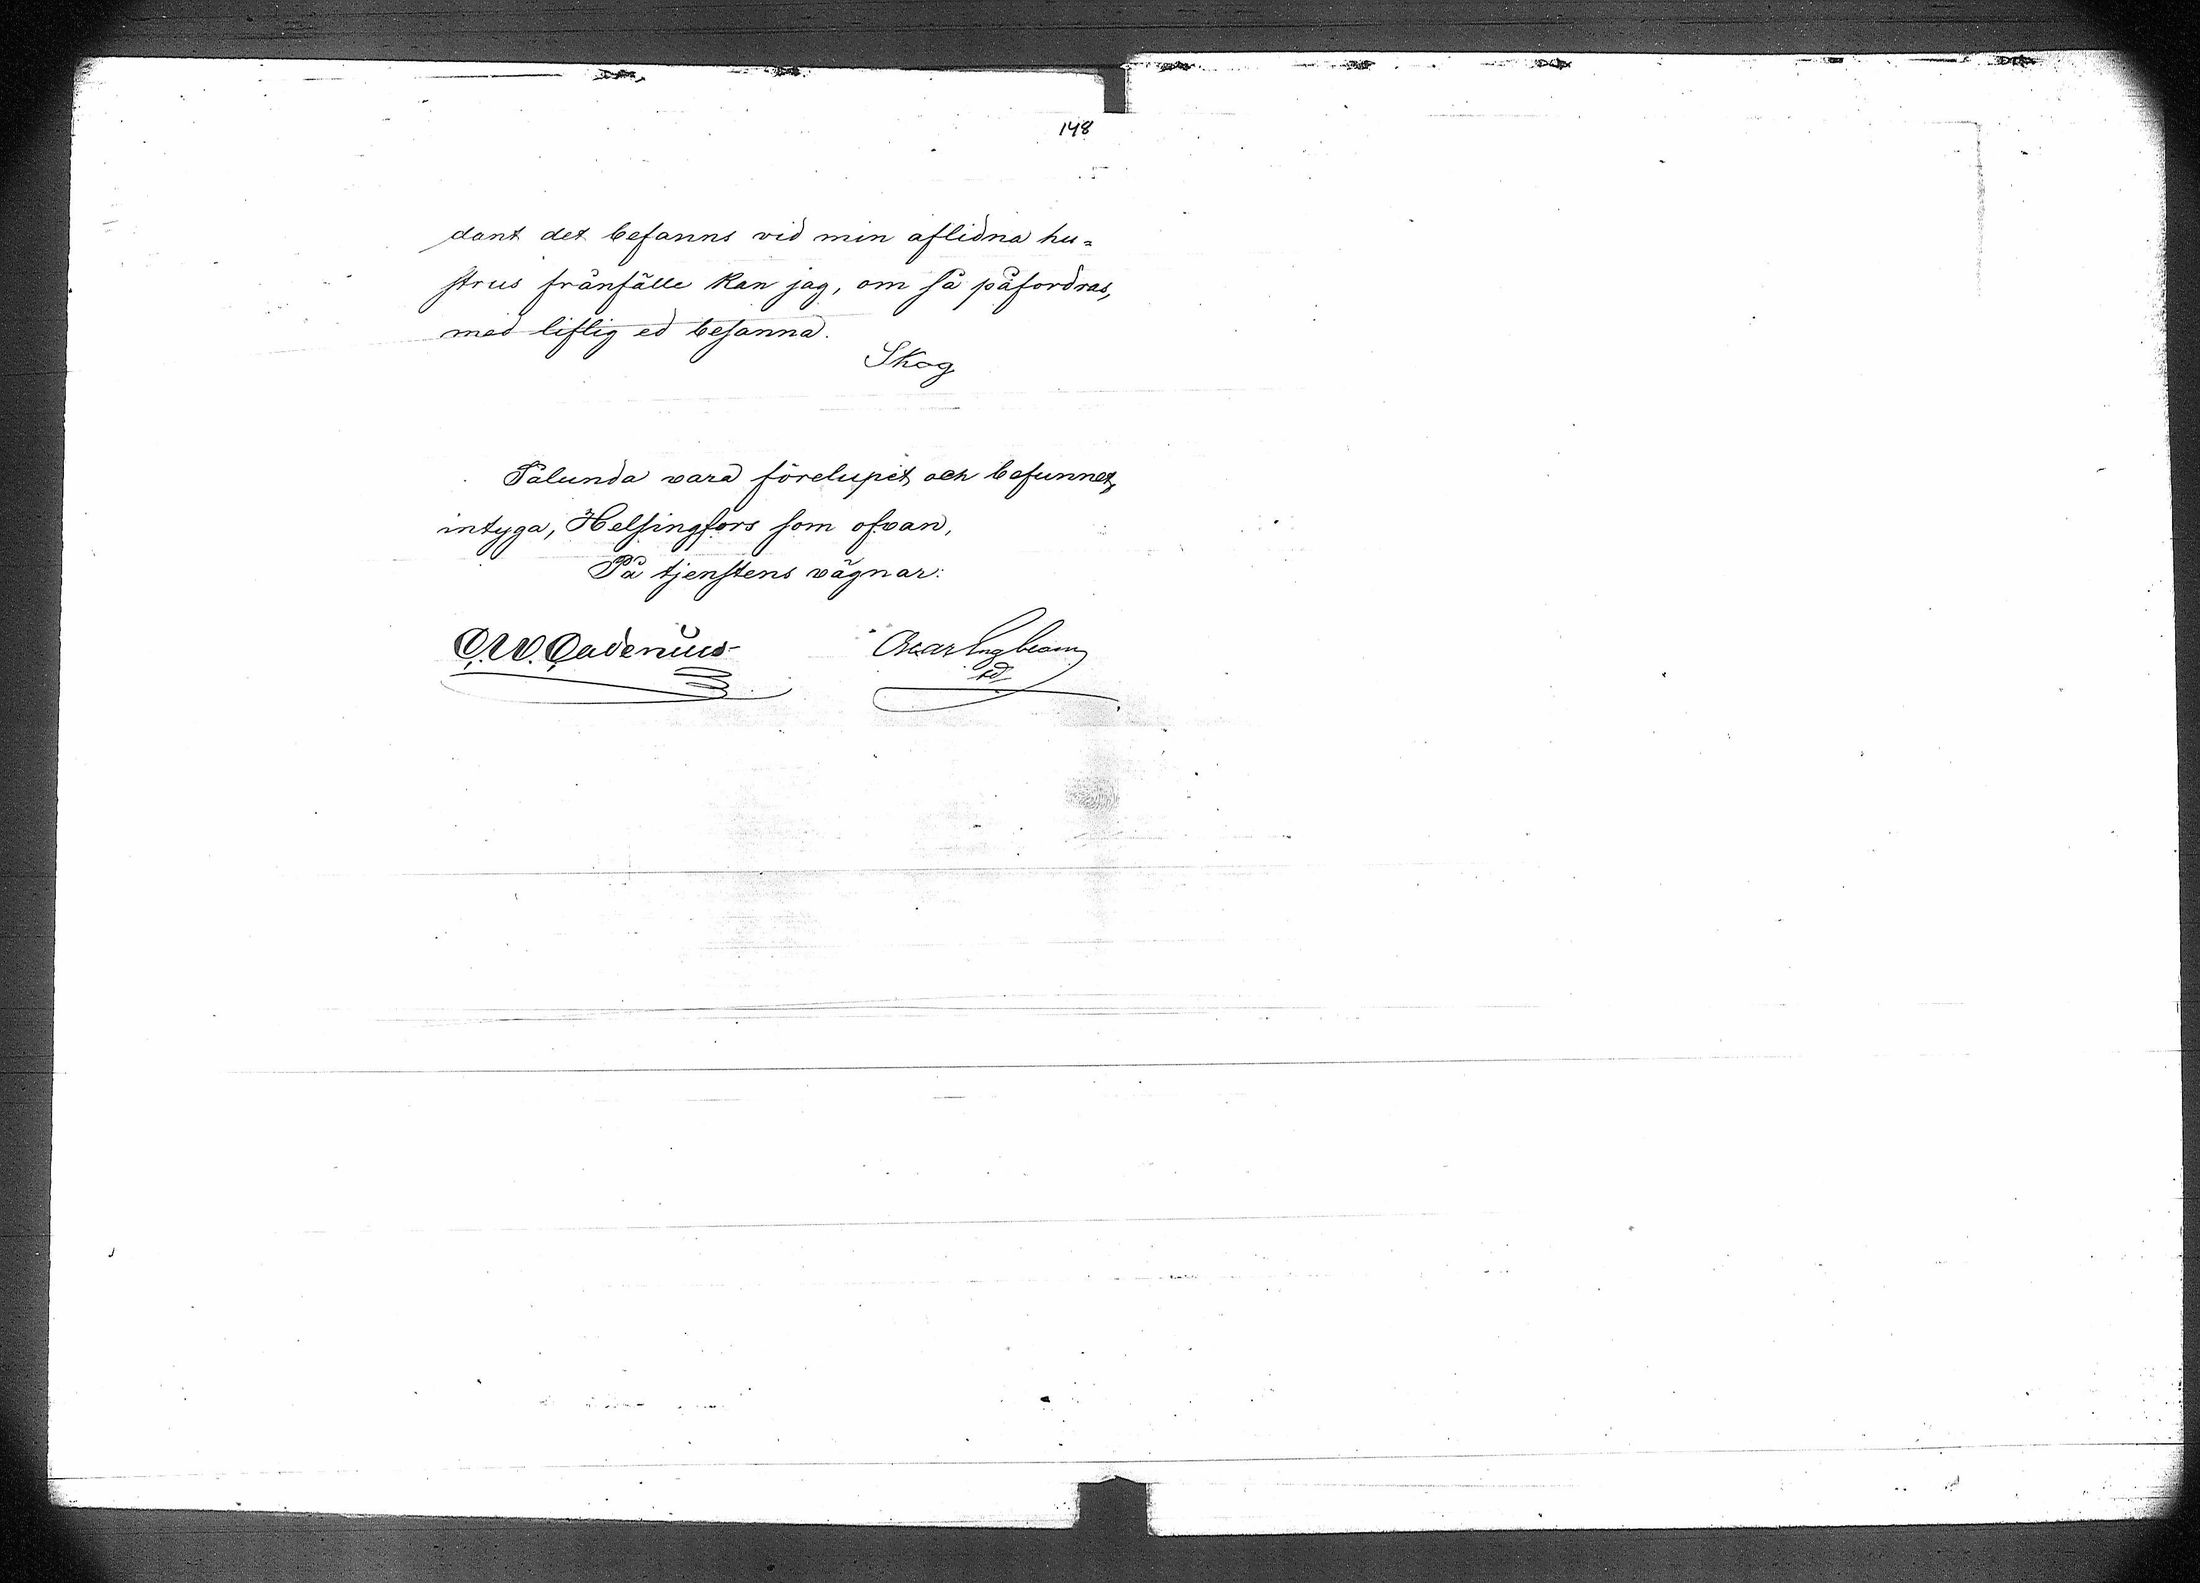 148
dant det befanns vid min aflidna hu=
strus frånfälle kan jag, om så påfordras,
med liflig ed besanna.
Skog
Sålunda vara förelupet och befunnet,
intyga, Helsingfors som ofvan,
På tjenstens vägnar:
C. W. Cadenius Oscar Engblom